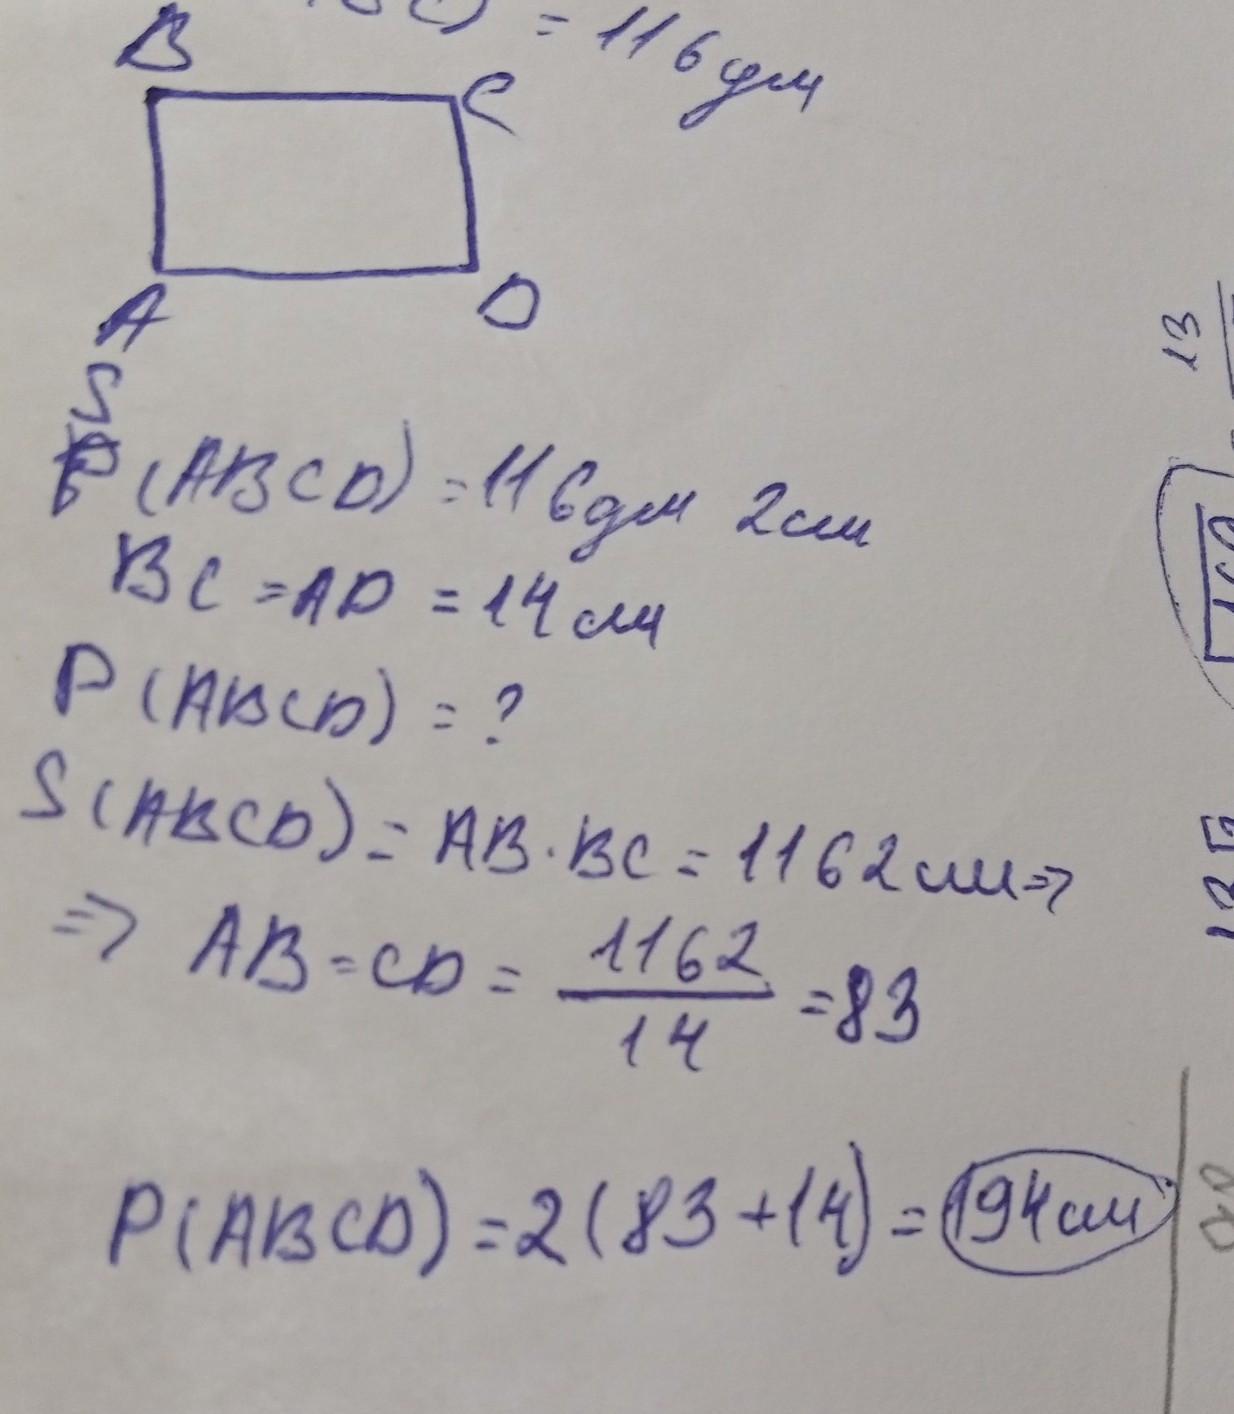 = 116дм
B
C
A
D
S
P(ABCD) = 116дм 2см
BC = AD = 14см
P(ABCD) = ?
S(ABCD) = AB · BC = 1162см =>
=> AB = CD = 1162/14 = 83
P(ABCD) = 2(83 + 14) = 194см
13